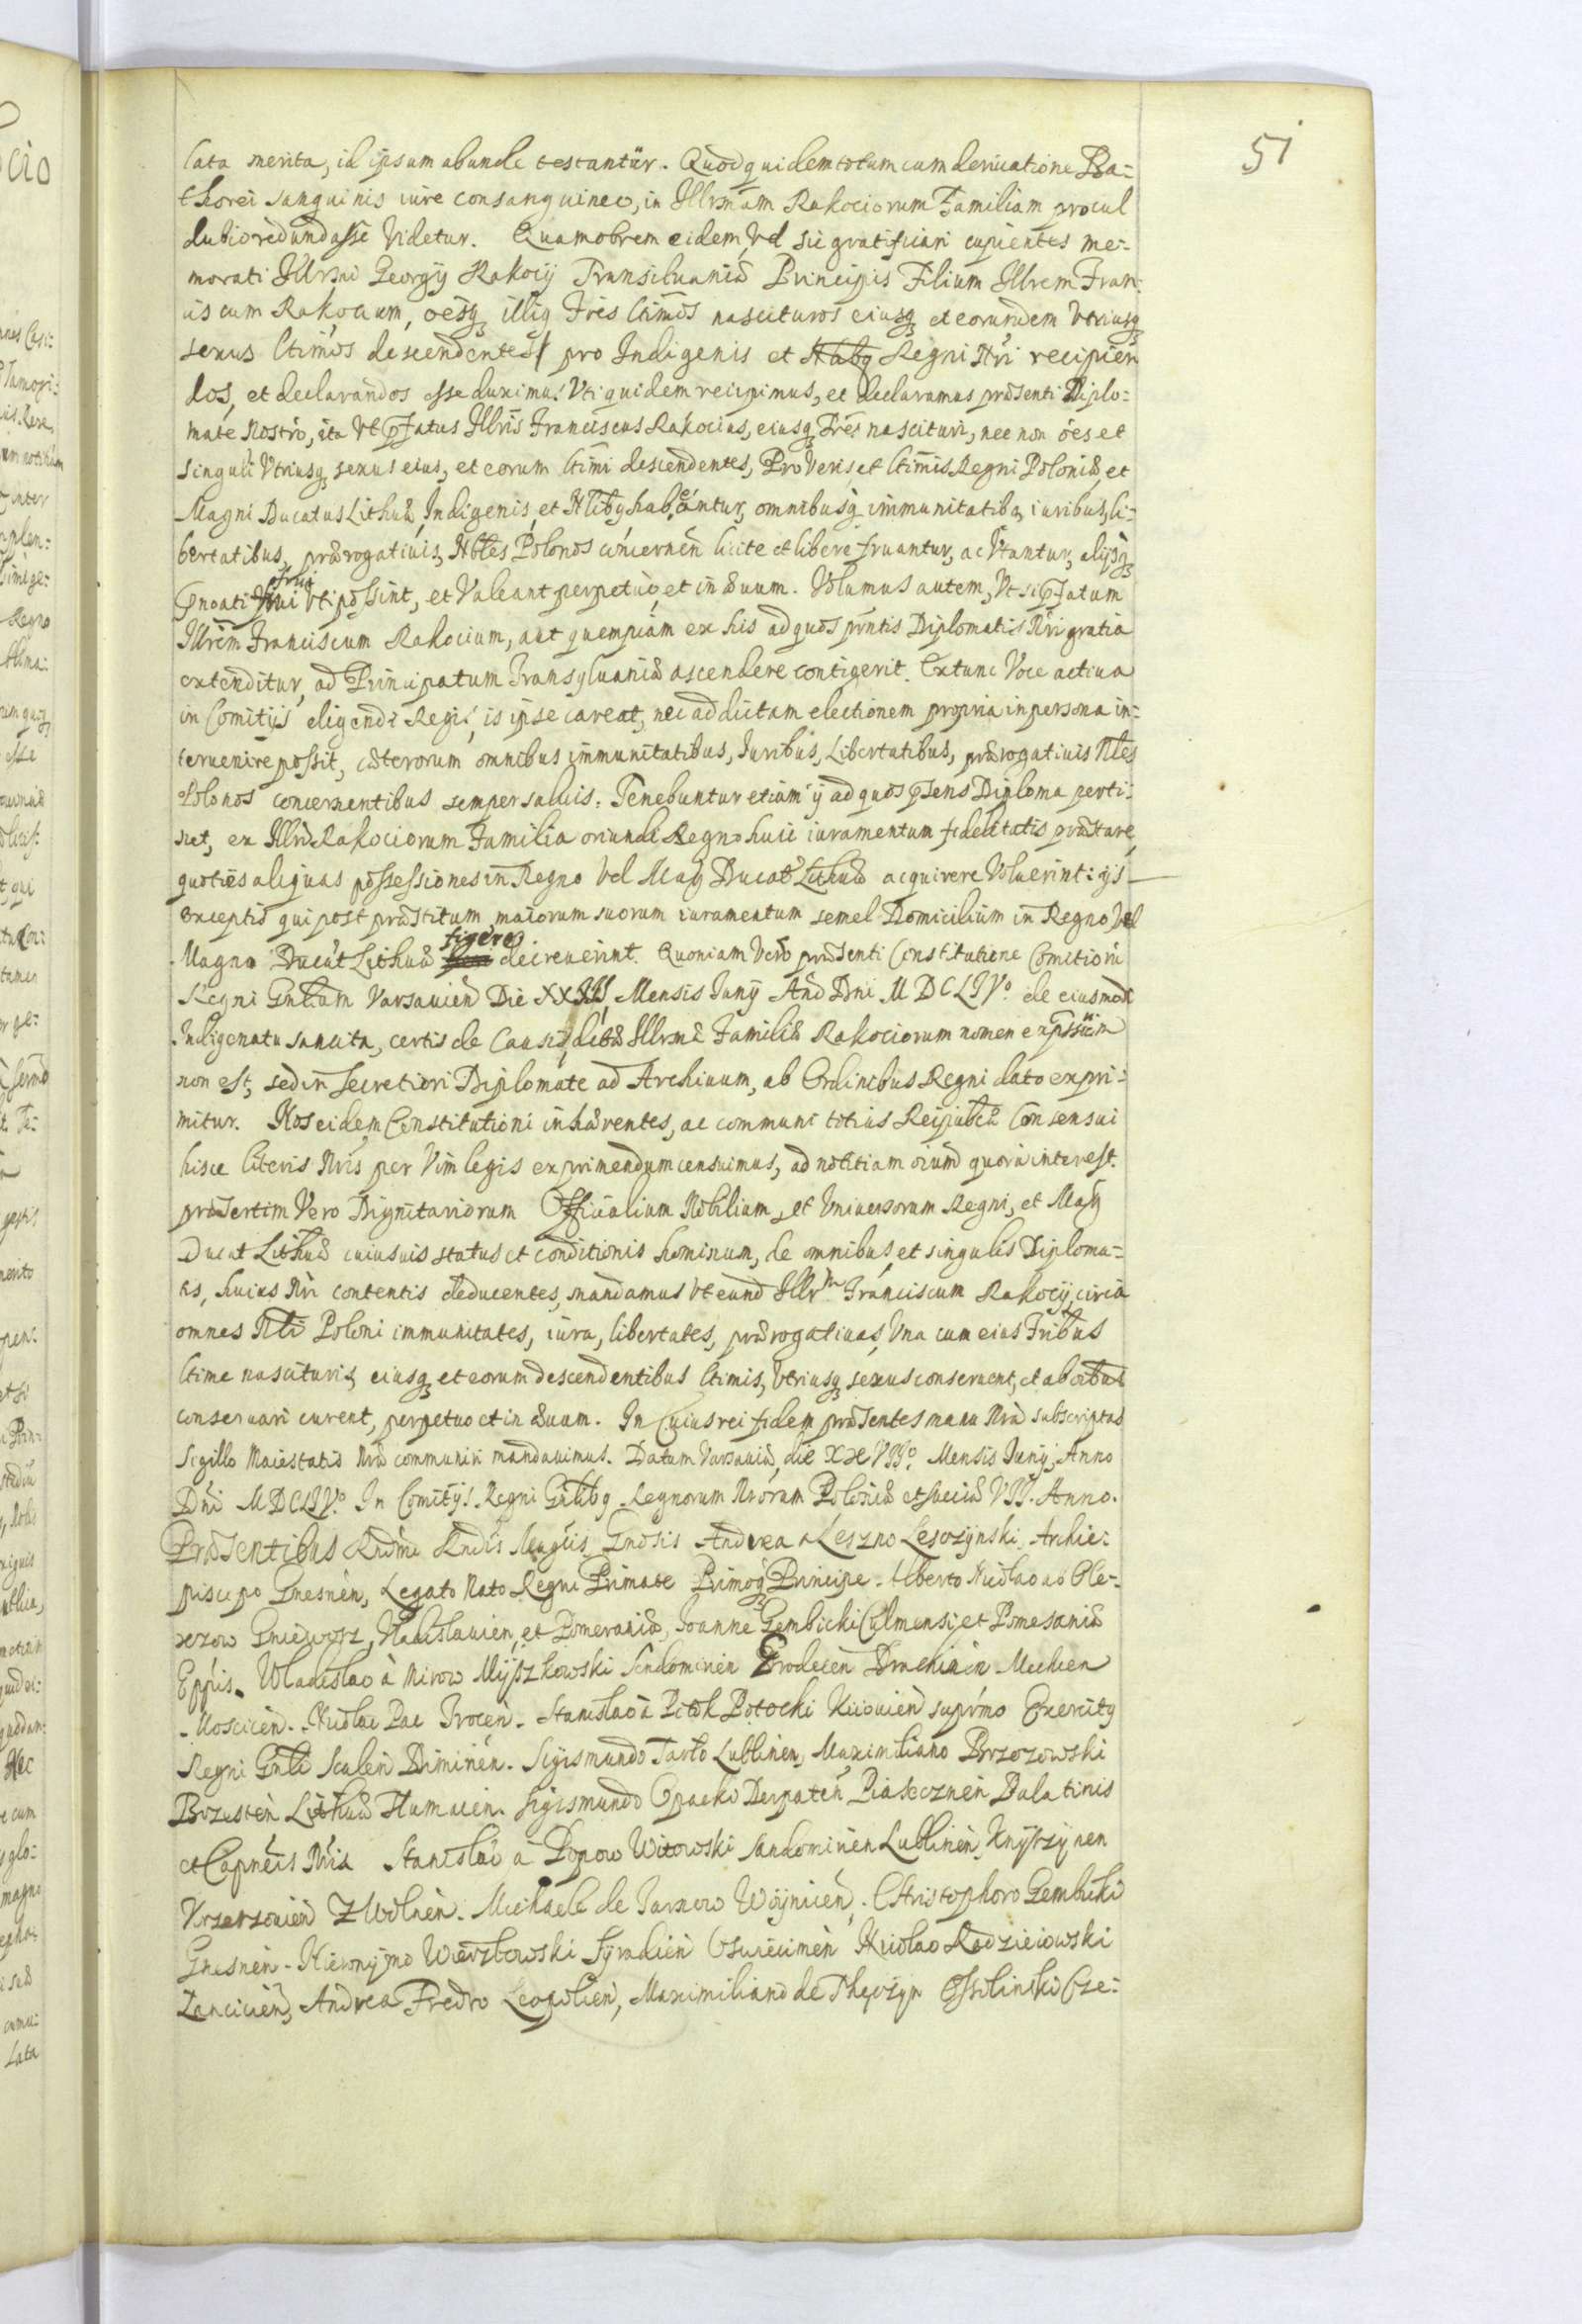 51
lata merita, id ipsum abunde testantur. Quod quidem totum cum deriuatione Ba-
thorei sanguinis iure consanguineo, in Illrmam Rakociorum Familiam procul
dubio redundasse Videtur. Quamobrem eidem, Vel sic gratificari cupientes me-
morati Illrmi Georgij Rakocij Transiluaniæ Principis Filium Illrem Fran-
ciscum Rakocium, oesq illiq Fres ltimos nascituros eiusq et eorundem Vtriusq
sexus ltimos descendentes pro Indigenis et Regni Nri recipien
dos, et declarandos esse duximus. Vti quidem recipimus, et declaramus præsenti Diplo-
mate Nostro, ita Vt pfatus Illris Franciscus Rakocius, eiusq Fres nascituri, nec non oes et
singuli Vtriusq sexus eius, et eorum ltimi descendentes, Pro Veris et ltimis Regni Poloniæ, et
Magni Ducatus Lithuæ Indigenis, et Nlibq habeantur, omnibusq immunitatibq iuribus, li-
bertatibus, prærogatiuis, Nbles Polonos concernen licite et libere fruantur, ac Vtantur, alijsq
gnoati frui Vti possint, et Valeant perpetuo, et in æuum. Volumus autem, Vt si pfatum
Illrem Franciscum Rakocium, aut quempiam ex his ad quos pntis Diplomatis Nri gratia
extenditur, ad Principatum Transyluaniæ ascendere contigerit. Extunc Voce actiua
in Comitijs eligendi Regis, is ipse careat, nec ad dictam electionem propria in persona in-
teruenire possit, cæterorum omnibus immunitatibus, Iuribus, Libertatibus, prærogatiuis Nles
Polonos concernentibus semper saluis. Tenebuntur etiam ij ad quos psens Diploma perti-
net, ex Illri Rakociorum Familia oriundi Regno huic iuramentum fidelitatis præstare,
quoties aliquas possessiones in Regno Vel Mag Ducat Lithuæ acquirere Voluerint: ijs
exceptis qui post præstitum maiorum suorum iuramentum semel Domicilium in Regno Vel
Magno Ducat Lithuæ figere decreuerint. Quoniam Vero præsenti Constitutione Comitioru
Regni Gnlium Varsauien Die XXIII Mensis Iunij And Dni MDCLIVo. de eiusmodi
Indigenatu sancita, certis de Causis, dictæ Illrmæ Familiæ Rakociorum nomen expssum
non est, sed in secretiori Diplomate ad Archiuum, ab Ordinibus Regni dato expri-
mitur. Nos eidem Constitutioni inhærentes, ac communi totius Reipublcæ Consensui
hisce literis Nris per Vim legis exprimendum censuimus, ad notitiam oium quoru interest.
præsertim Vero Dignitariorum Officialium Nobilium, et Vniuersorum Regni, et Mag
Ducat Lithuæ cuiusuis status et conditionis hominum, de omnibus, et singulis Diploma-
tis, huius Nri contentis deducentes, mandamus Vt eund Illrm Franciscum Rakocij, circa
omnes Nlis Poloni immunitates, iura, libertates, prærogatiuas, Vna cum eius Fribus
ltime nascituris, eiusq et eorum descendentibus ltimis, Vtriusq sexus conseruent, et ab oibus
conseruari curent, perpetuo et in æuum. In Cuius rei fidem præsentes manu Nra subscriptas
Sigillo Maiestatis Nræ communiri mandauimus. Datum Varsauiæ, die XXVIIo. Mensis Iunij. Anno
Dni MDCLIVo. In Comitijs Regni Gnlibq Regnorum Nrorum Poloniæ et Sueciæ VII. Anno.
Præsentibus Rndmi Rndis Magcis Gnosis Andrea a Leszno Lesczynski Archie-
piscopo Gnesnen, Legato Nato Regni Primate Primoq Principe. Alberto Nicolao ab Ole-
xow Gniewosz, Vladislauien, et Pomeraniæ, Ioanne Gembicki Culmensi, et Pomesaniæ
Eppis. Wladislao à Mirow Myszkowski Sendomirien Grodecen Drachimen Mechcen
Moscicen. Nicolao Pac Trocen. Stanislao à Potok Potocki Kiiouien supmo Exercitq
Regni Gnli Scalen Diminen. Sigismundo Tarlo Lublinen, Maximiliano Brzozowski
Brzesten Lithuæ Humacien. Sigismundo Opacki Derpaten Piaseoznen Palatinis
et Capneis Nris Stanislao à Popow Witowski Sandomirien Lublinen, Knyszynen
Krzerzouien Zwolnen. Michaele de Tarnow Woynicen. Christophoro Gembicki
Gnesnen. Hieronymo Wierzbowski Syradien Osuiecimen Nicolao Radzieiowski
Lancicien, Andrea Fredro Leopolien, Maximiliano de Thęczyn Ossolinski Cze-